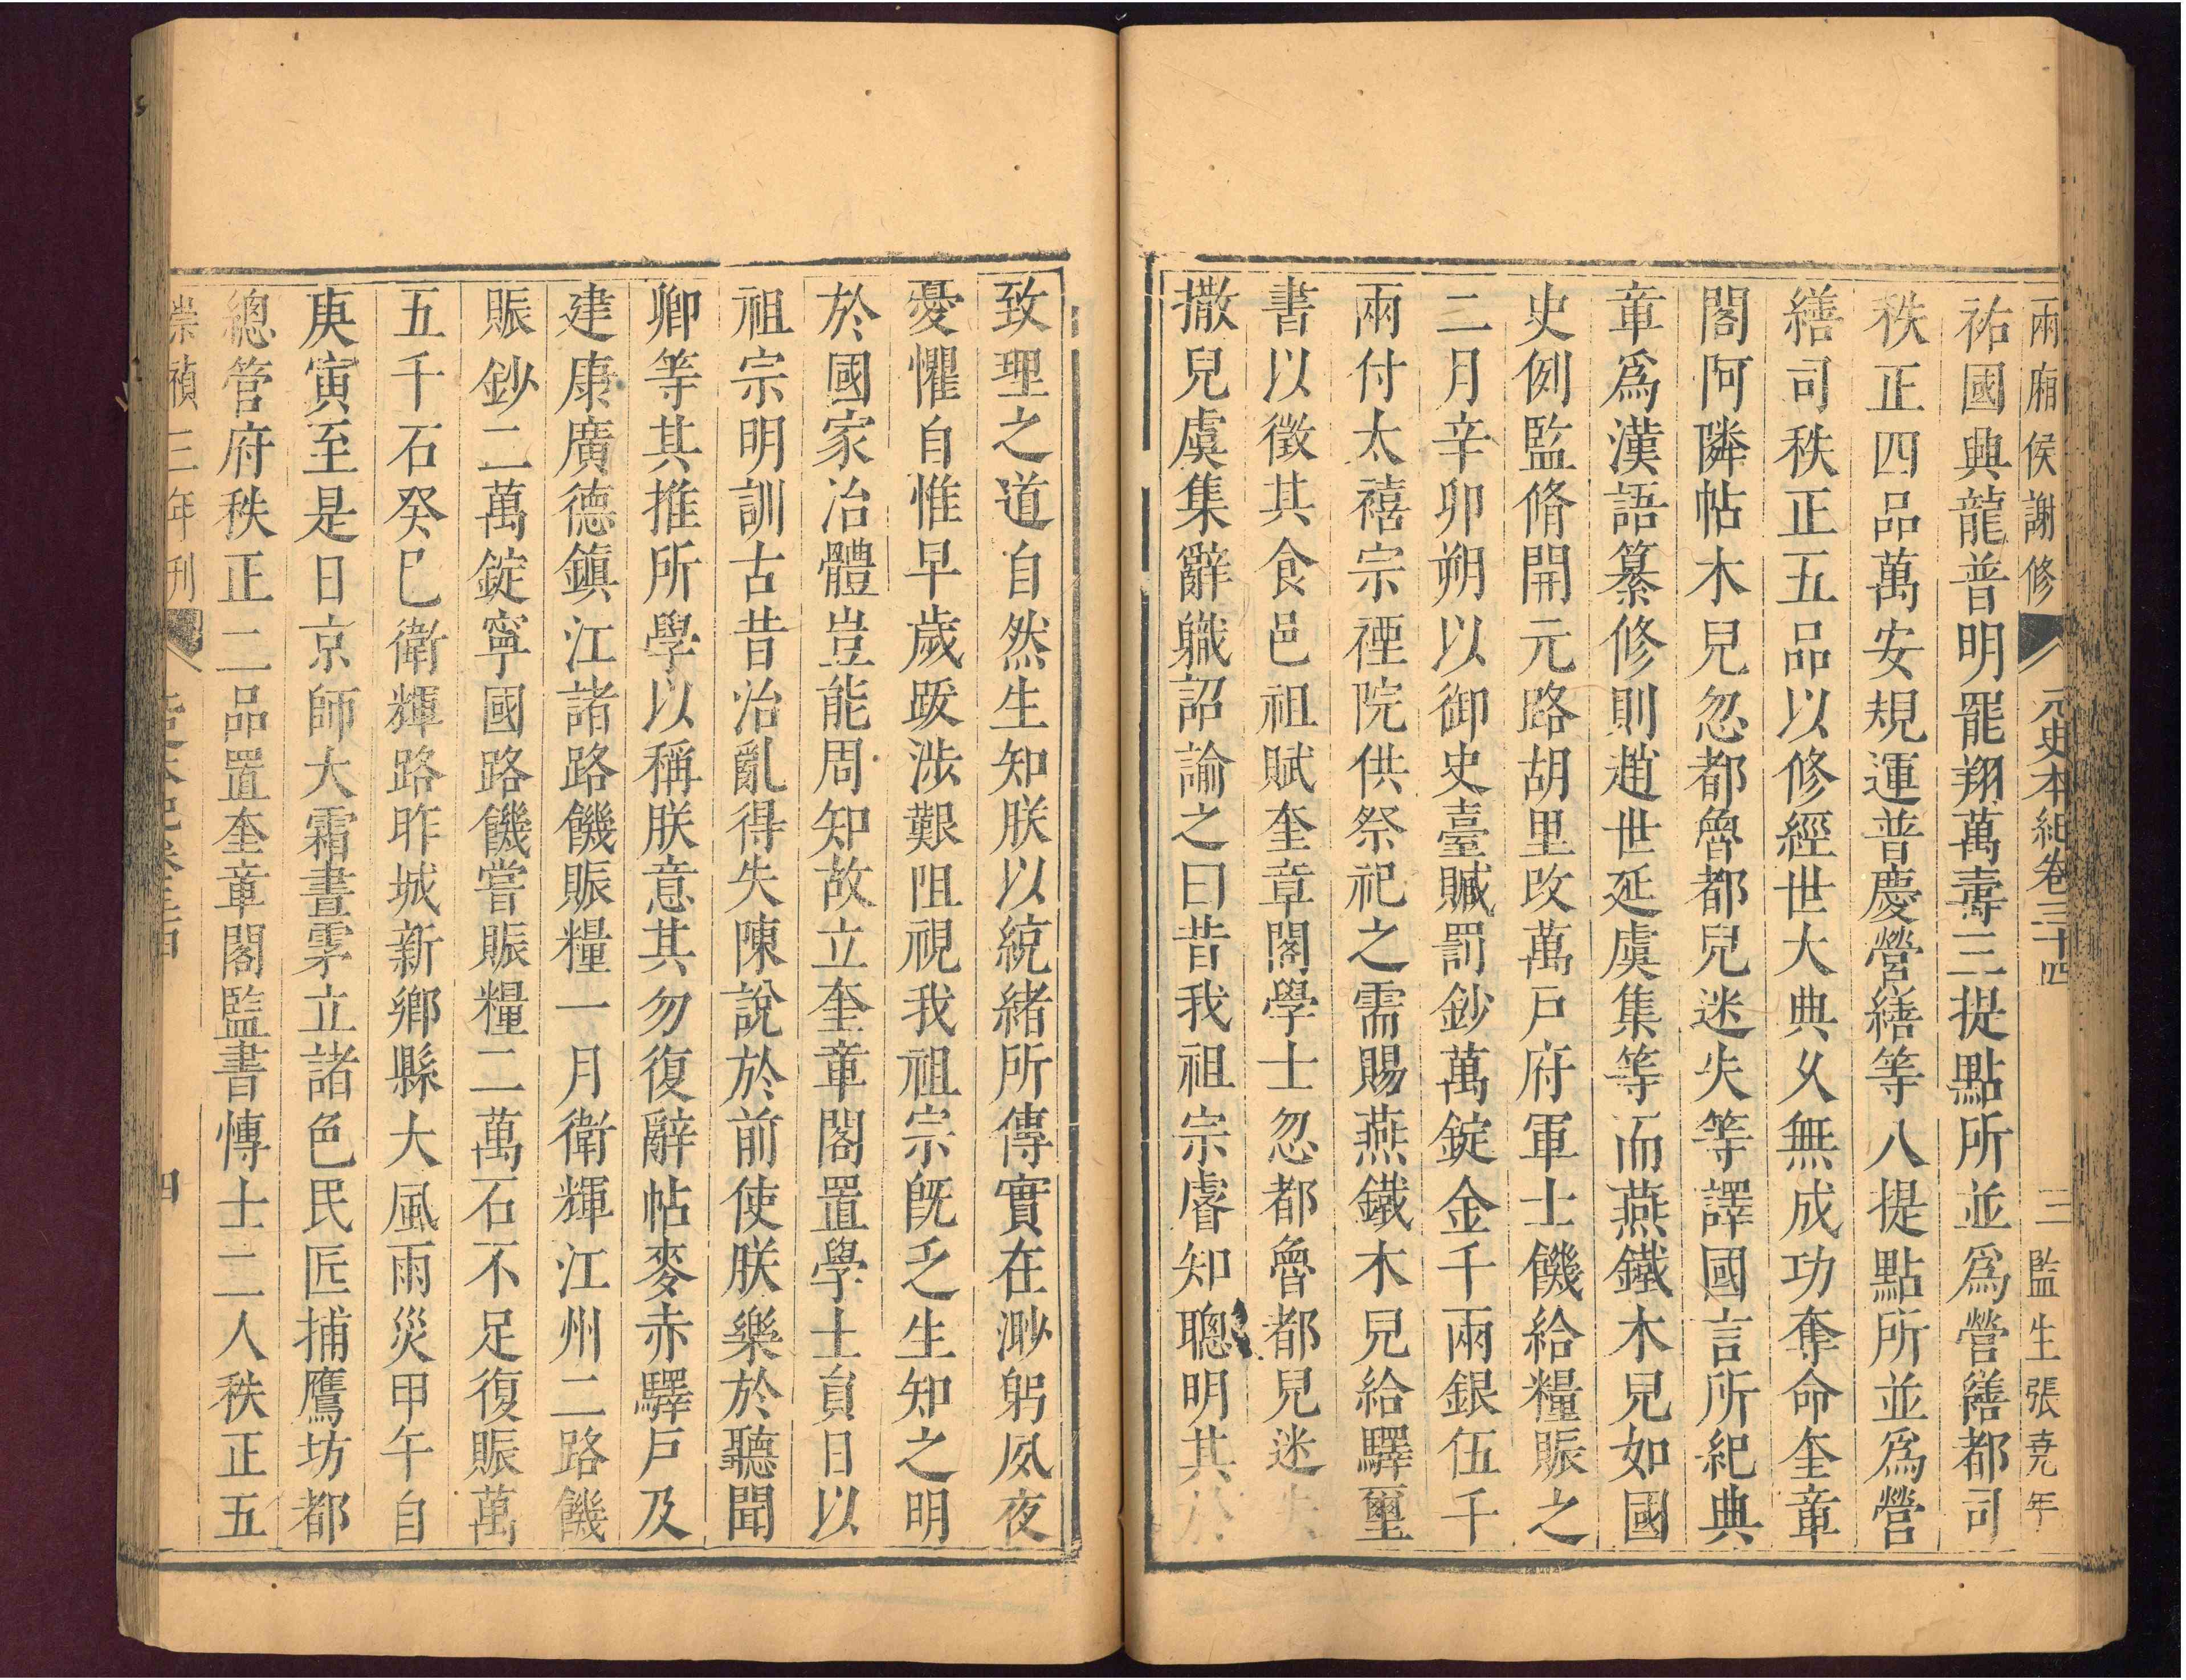 兩廂侯謝修 元史本紀卷三十四 三 監生張堯年
祐國典龍普明罷翔萬壽三提點所並爲營繕都司
秩正四品萬安規運普慶營繕等八提點所並爲營
繕司秩正五品以修經世大典久無成功奪命奎章
閣阿隣帖木兒忽都魯都兒迷失等譯國言所紀典
章爲漢語纂修則趙世延虞集等而燕鐵木兒如國
史例監脩開元路胡里改萬戶府軍士饑給糧賑之
二月辛卯朔以御史臺贓罰鈔萬錠金千兩銀伍千
兩付太禧宗禋院供祭祀之需賜燕鐵木兒給驛璽
書以徵其食邑祖賦奎章閣學士忽都魯都兒迷失
撒兒虞集辭職詔諭之曰昔我祖宗睿知聰明其於
致理之道自然生知朕以統緒所傳實在渺躬夙夜
憂懼自惟早歲跋涉艱阻視我祖宗旣乏生知之明
於國家治體豈能周知故立奎章閣置學士員日以
祖宗明訓古昔治亂得失陳說於前使朕樂於聽聞
卿等其推所學以稱朕意其勿復辭帖麥赤驛戶及
建康廣德鎭江諸路饑賑糧一月衛輝江州二路饑
賑鈔二萬錠寧國路饑嘗賑糧二萬石不足復賑萬
五千石癸巳衛輝路胙城新鄉縣大風雨災甲午自
庚寅至是日京師大霜晝雺立諸色民匠捕鷹坊都
總管府秩正二品置奎章閣監書博士二人秩正五
崇禎三年刊 四